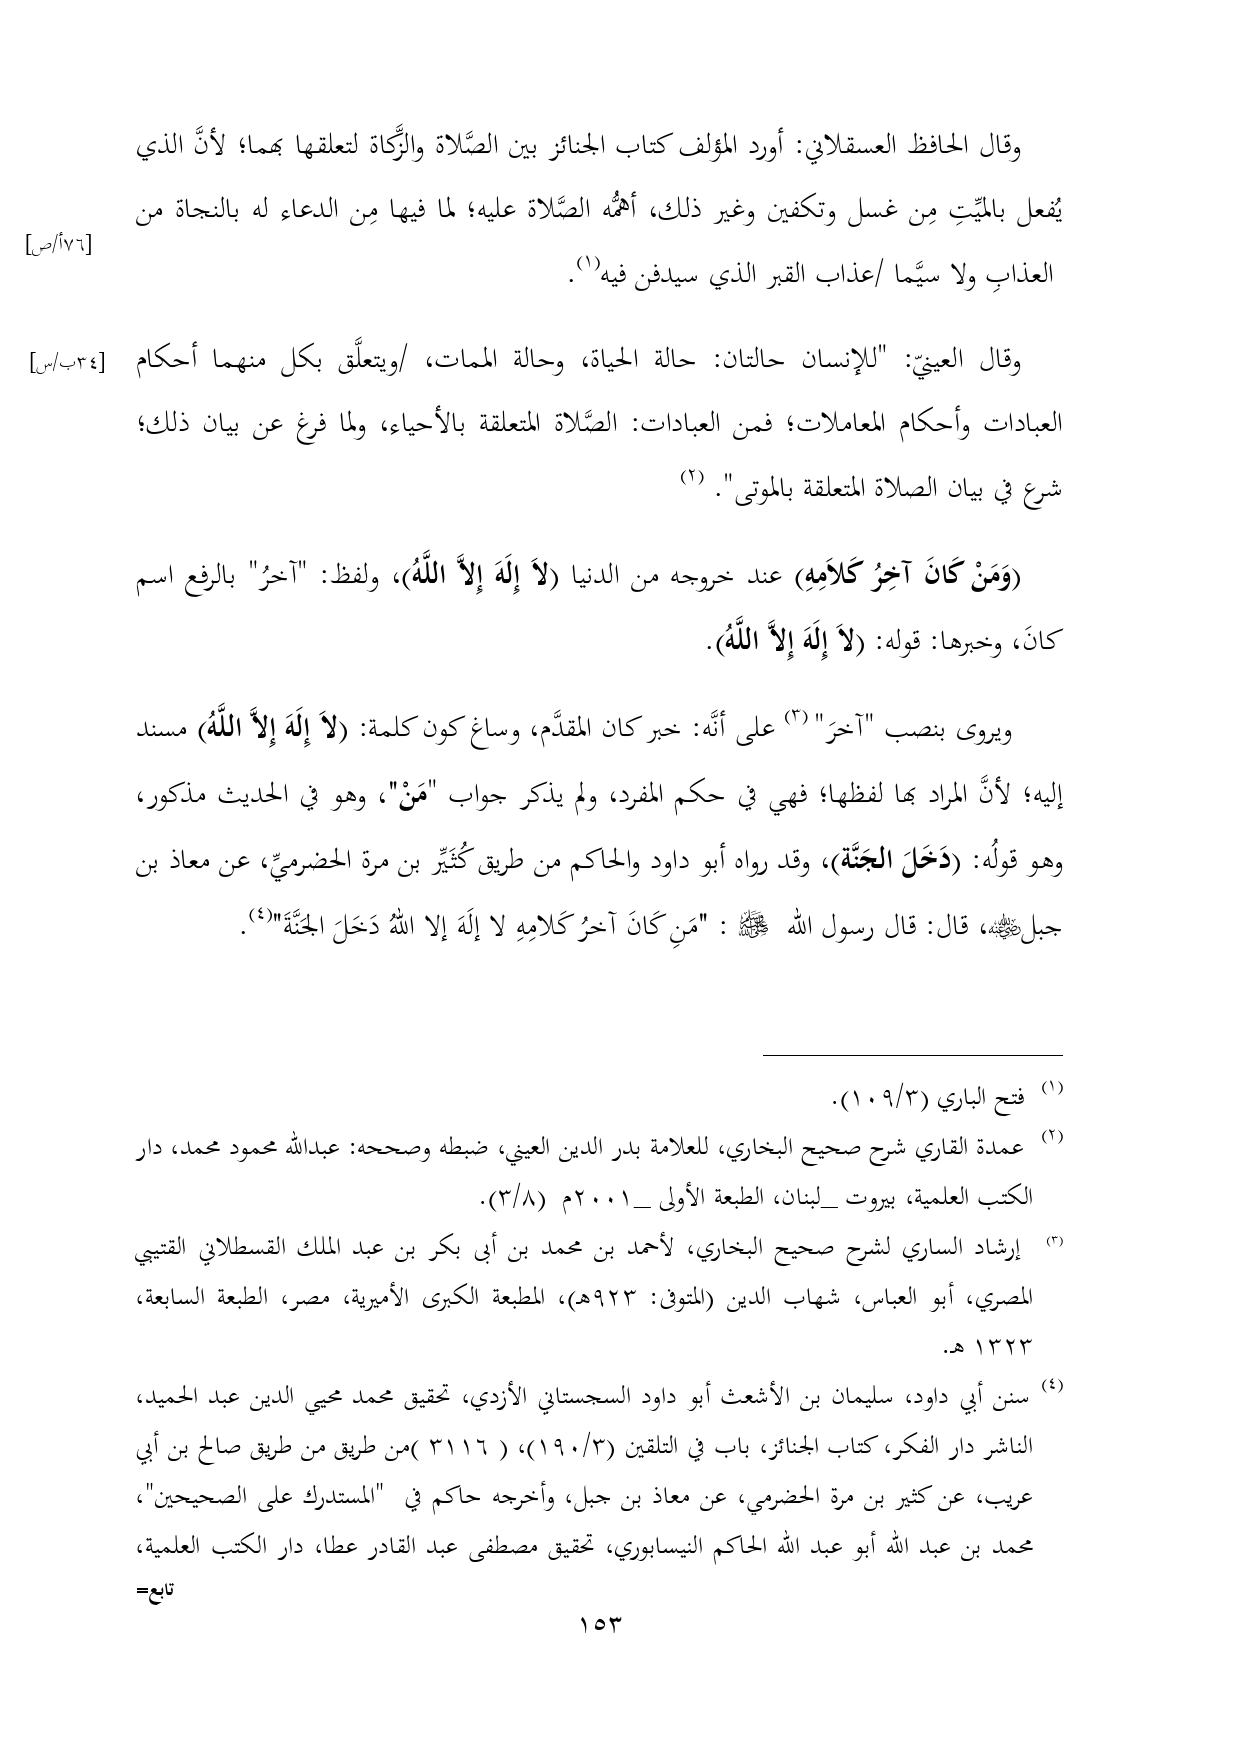 وقال الحافظ العسقلاني: أورد المؤلف كتاب الجنائز بين الصَّلاة والزَّكاة لتعلقها بهما؛ لأنَّ الذي
يُفعل بالميِّتِ مِن غسل وتكفين وغير ذلك، أهمُّه الصَّلاة عليه؛ لما فيها مِن الدعاء له بالنجاة من
[٧٦أ/ص]
العذابِ ولا سيَّما /عذاب القبر الذي سيدفن فيه(١).
وقال العينيّ: "للإنسان حالتان: حالة الحياة، وحالة الممات، /ويتعلَّق بكل منهما أحكام
[٣٤ب/س]
العبادات وأحكام المعاملات؛ فمن العبادات: الصَّلاة المتعلقة بالأحياء، ولما فرغ عن بيان ذلك؛
شرع في بيان الصلاة المتعلقة بالموتى". (٢)
(وَمَنْ كَانَ آخِرُ كَلاَمِهِ) عند خروجه من الدنيا (لاَ إِلَهَ إِلاَّ اللَّهُ)، ولفظ: "آخرُ" بالرفع اسم
كانَ، وخبرها: قوله: (لاَ إِلَهَ إِلاَّ اللَّهُ).
ويروى بنصب "آخرَ" (٣) على أنَّه: خبر كان المقدَّم، وساغ كون كلمة: (لاَ إِلَهَ إِلاَّ اللَّهُ) مسند
إليه؛ لأنَّ المراد بها لفظها؛ فهي في حكم المفرد، ولم يذكر جواب "مَنْ"، وهو في الحديث مذكور،
وهو قولُه: (دَخَلَ الجَنَّة)، وقد رواه أبو داود والحاكم من طريق كُثَيِّر بن مرة الحضرميِّ، عن معاذ بن
جبل﵁، قال: قال رسول الله ﷺ : "مَنِ كَانَ آخرُ كَلامِهِ لا إلَهَ إلا اللهُ دَخَلَ الجَنَّةَ"(٤).
(١) فتح الباري (١٠٩/٣).
(٢) عمدة القاري شرح صحيح البخاري، للعلامة بدر الدين العيني، ضبطه وصححه: عبدالله محمود محمد، دار
الكتب العلمية، بيروت _لبنان، الطبعة الأولى _٢٠٠١م (٣/٨).
(٣) إرشاد الساري لشرح صحيح البخاري، لأحمد بن محمد بن أبى بكر بن عبد الملك القسطلاني القتيبي
المصري، أبو العباس، شهاب الدين (المتوفى: ٩٢٣هـ)، المطبعة الكبرى الأميرية، مصر، الطبعة السابعة،
١٣٢٣ هـ.
(٤) سنن أبي داود، سليمان بن الأشعث أبو داود السجستاني الأزدي، تحقيق محمد محيي الدين عبد الحميد،
الناشر دار الفكر، كتاب الجنائز، باب في التلقين (١٩٠/٣)، ( ٣١١٦ )من طريق من طريق صالح بن أبي
عريب، عن كثير بن مرة الحضرمي، عن معاذ بن جبل، وأخرجه حاكم في "المستدرك على الصحيحين"،
محمد بن عبد الله أبو عبد الله الحاكم النيسابوري، تحقيق مصطفى عبد القادر عطا، دار الكتب العلمية،
تابع=
١٥٣